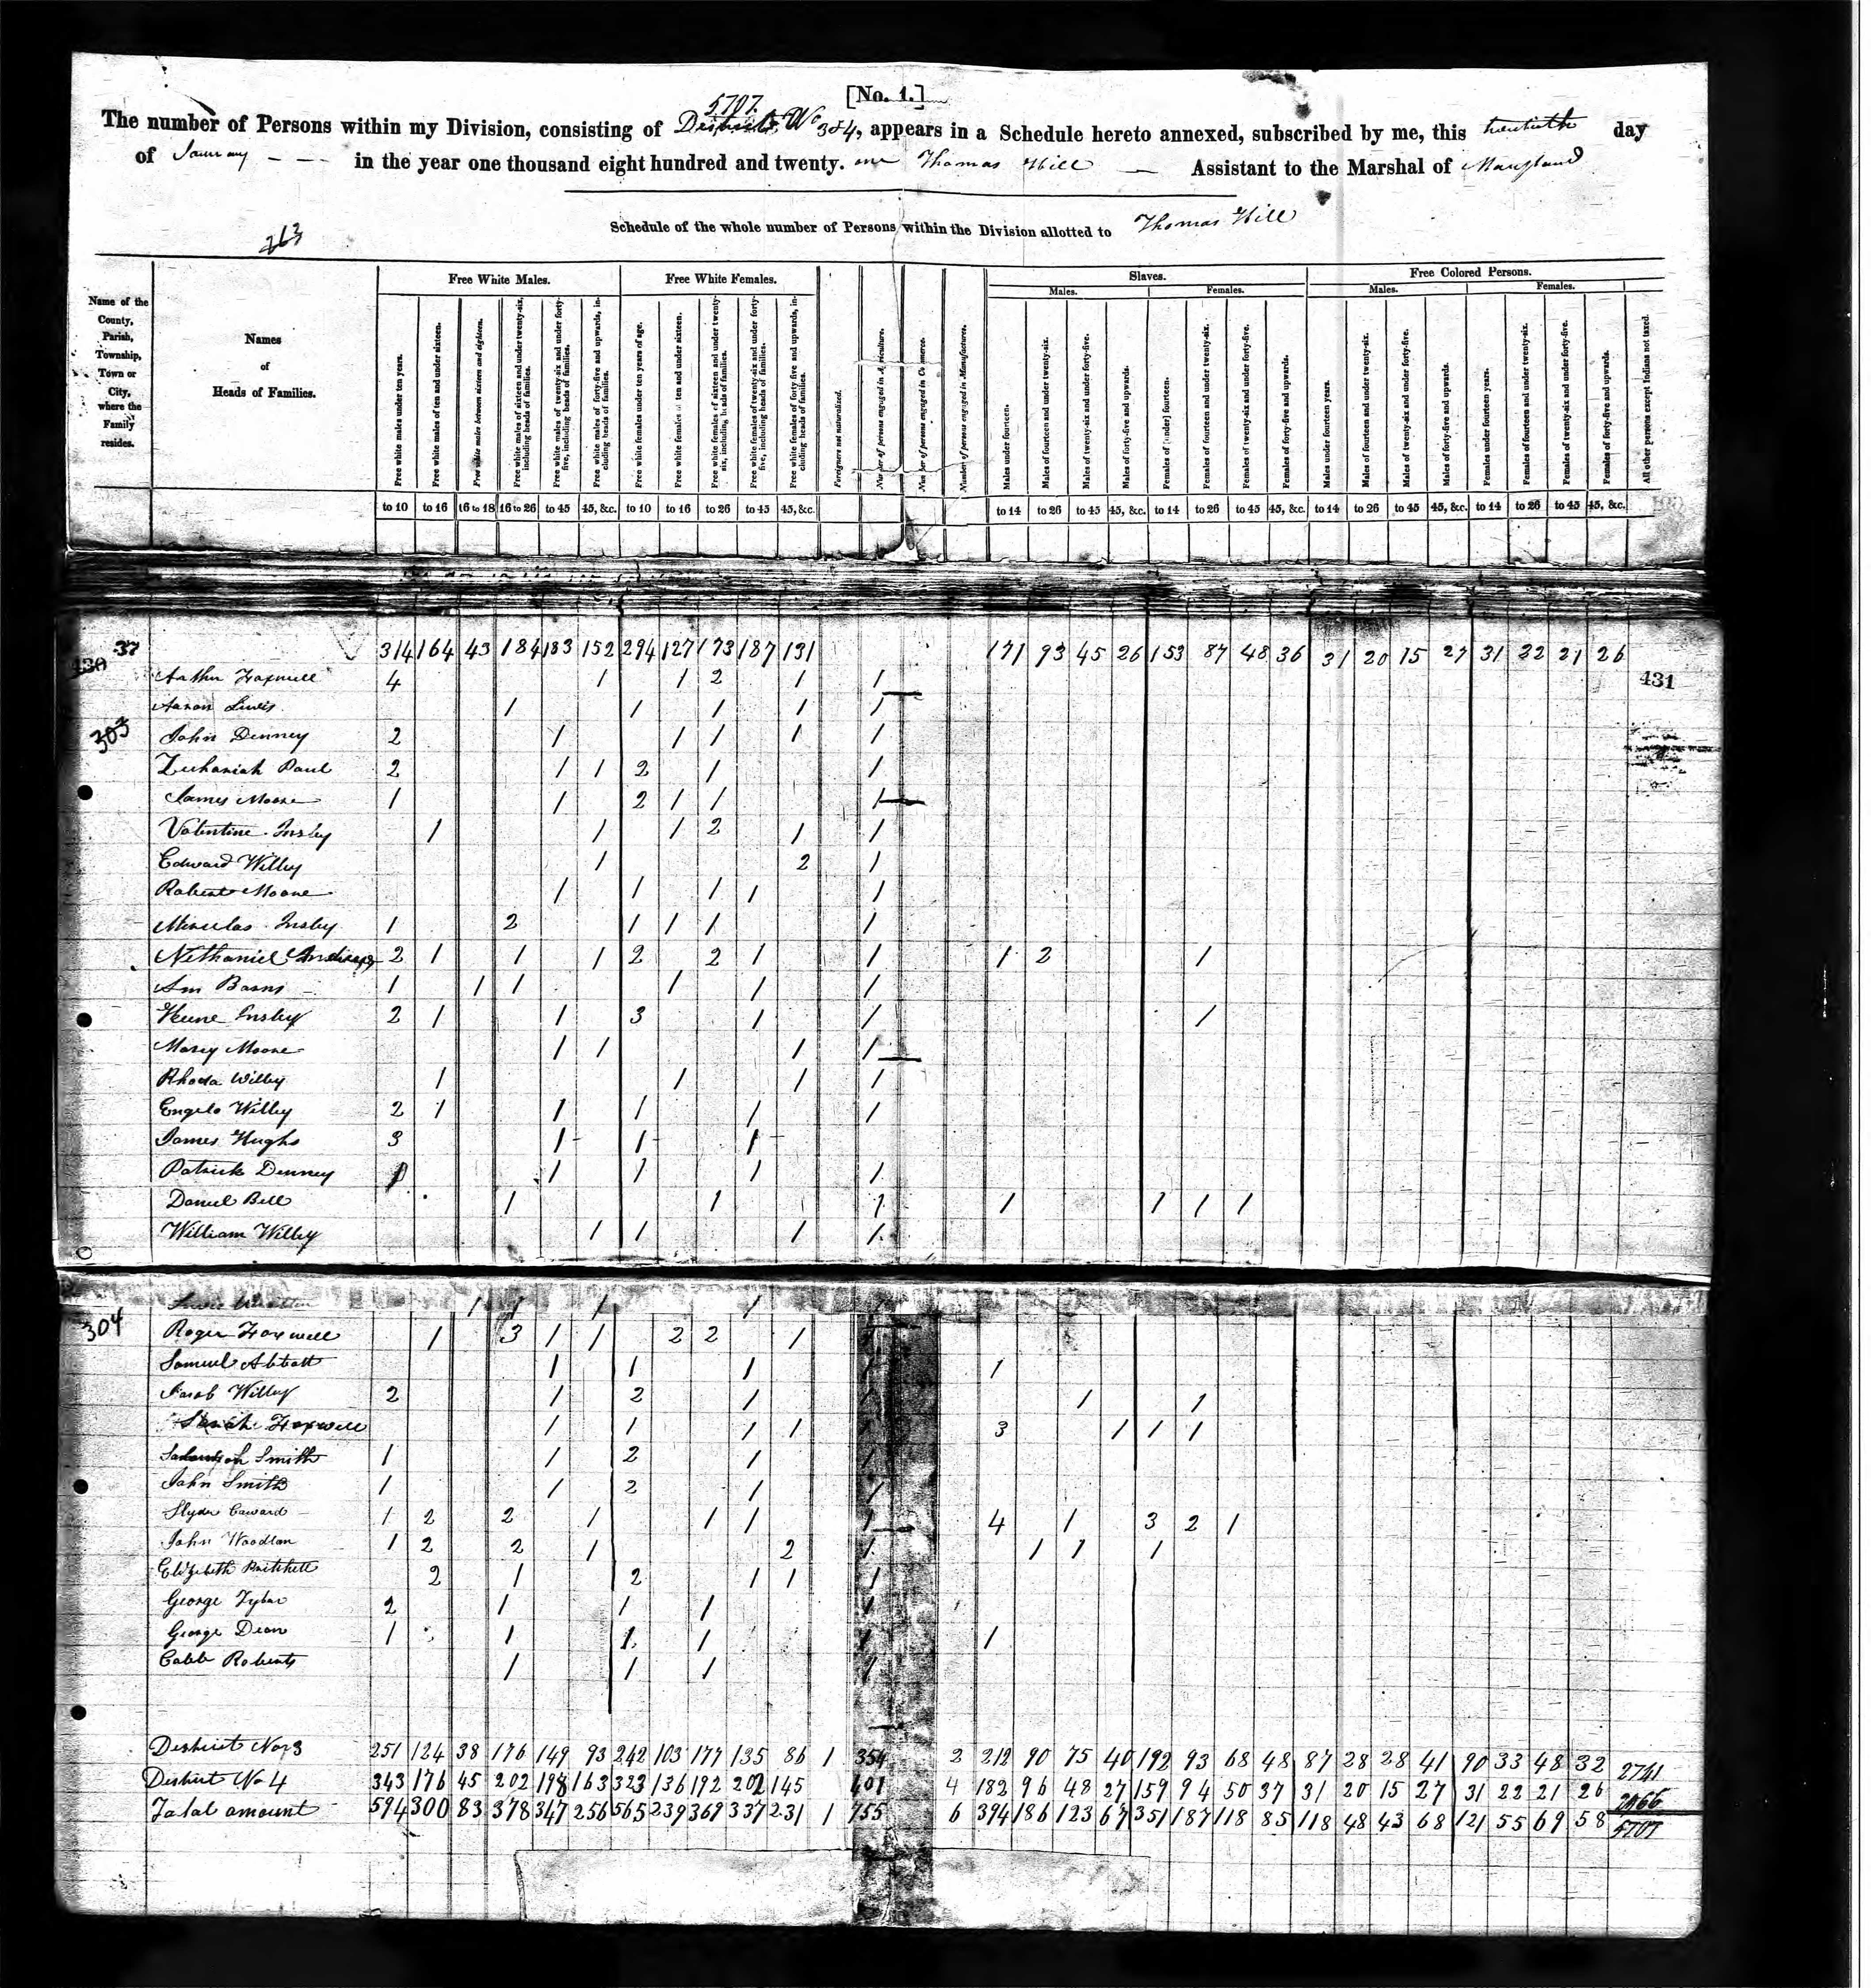 [No. 1.]
5707
The number of Persons within my Division, consisting of Districts No 3 & 4, appears in a Schedule hereto annexed, subscribed by me, this twentieth day
of January in the year one thousand eight hundred and twenty. one Thomas Hill Assistant to the Marshal of Maryland
Schedule of the whole number of Persons within the Division allotted to Thomas Hill
263
Name of the County, Parish, Township, Town or City, where the Family resides.
Names of Heads of Families.
Free White Males.
Free White Females.
Slaves.
Free Colored Persons.
Males. Females. Males. Females.
Free white males under ten years.
Free white males of ten and under sixteen.
Free white males between sixteen and eighteen.
Free white males of sixteen and under twenty-six, including heads of families.
Free white males of twenty-six and under forty-five, including heads of families.
Free white males of forty-five and upwards, including heads of families.
Free white females under ten years of age.
Free white females of ten and under sixteen.
Free white females of sixteen and under twenty-six, including heads of families.
Free white females of twenty-six and under forty-five, including heads of families.
Free white females of forty five and upwards, including heads of families.
Foreigners not naturalized.
Number of persons engaged in Agriculture.
Number of persons engaged in Commerce.
Number of persons engaged in Manufactures.
Males under fourteen.
Males of fourteen and under twenty-six.
Males of twenty-six and under forty-five.
Males of forty-five and upwards.
Females of [under] fourteen.
Females of fourteen and under twenty-six.
Females of twenty-six and under forty-five.
Females of forty-five and upwards.
Males under fourteen years.
Males of fourteen and under twenty-six.
Males of twenty-six and under forty-five.
Males of forty-five and upwards.
Females under fourteen years.
Females of fourteen and under twenty-six.
Females of twenty-six and under forty-five.
Females of forty-five and upwards.
All other persons except Indians not taxed.
to 10 to 16 16 to 18 16 to 26 to 45 45, &c. to 10 to 16 to 26 to 45 45, &c. to 14 to 26 to 45 45, &c. to 14 to 26 to 45 45, &c. to 14 to 26 to 45 45, &c. to 14 to 26 to 45 45, &c.
37 314 164 43 184 183 152 294 127 173 187 131 171 93 45 26 153 87 48 36 31 20 15 27 31 22 21 26
430 431
4 1 1 2 1 1
Aaron Lewis 1 1 1 1 1
303 John Denney 2 1 1 1 1 1
Zachariah Paul 2 1 1 2 1 1
James Moore 1 1 2 1 1 1
Valentine Insley 1 1 1 2 1 1
Edward Willey 1 2 1
Robert Moore 1 1 1 1 1
Insley 1 2 1 1 1 1
Nathaniel 2 1 1 1 2 2 1 1 1 2 1
Barns 1 1 1 1 1 1
Keene Insley 2 1 1 3 1 1 1
Mary Moore 1 1 1 1
Rhoda Willey 1 1 1 1
Willey 2 1 1 1 1 1
James Hughs 3 1 1 1
Patrick Denney 1 1 1 1 1
Daniel Bell 1 1 1 1 1 1 1
William Willey 1 1 1 1
1 1 1 1 1
304 Roger Foxwell 1 3 1 1 2 2 1 1
Samuel Abbott 1 1 1 1 1
Jacob Willey 2 1 2 1 1 1 1
Sarah Foxwell 1 1 1 1 1 3 1 1 1
Smith 1 1 2 1 1
John Smith 1 1 2 1 1
1 2 2 1 1 1 1 4 1 3 2 1
John Woodlan 1 2 2 1 2 1 1 1 1
Elizebeth Pritchett 2 1 2 1 1 1
George Tyler 2 1 1 1 1
George Dean 1 1 1 1 1 1
Caleb Roberts 1 1 1 1
District No 3 251 124 38 176 149 93 242 103 177 135 86 1 354 2 212 90 75 40 192 93 68 48 87 28 28 41 90 33 48 32 2741
District No 4 343 176 45 202 198 163 323 136 192 202 145 401 4 182 96 48 27 159 94 50 37 31 20 15 27 31 22 21 26 2966
Total amount 594 300 83 378 347 256 565 239 369 337 231 1 755 6 394 186 123 67 351 187 118 85 118 48 43 68 121 55 69 58 5707